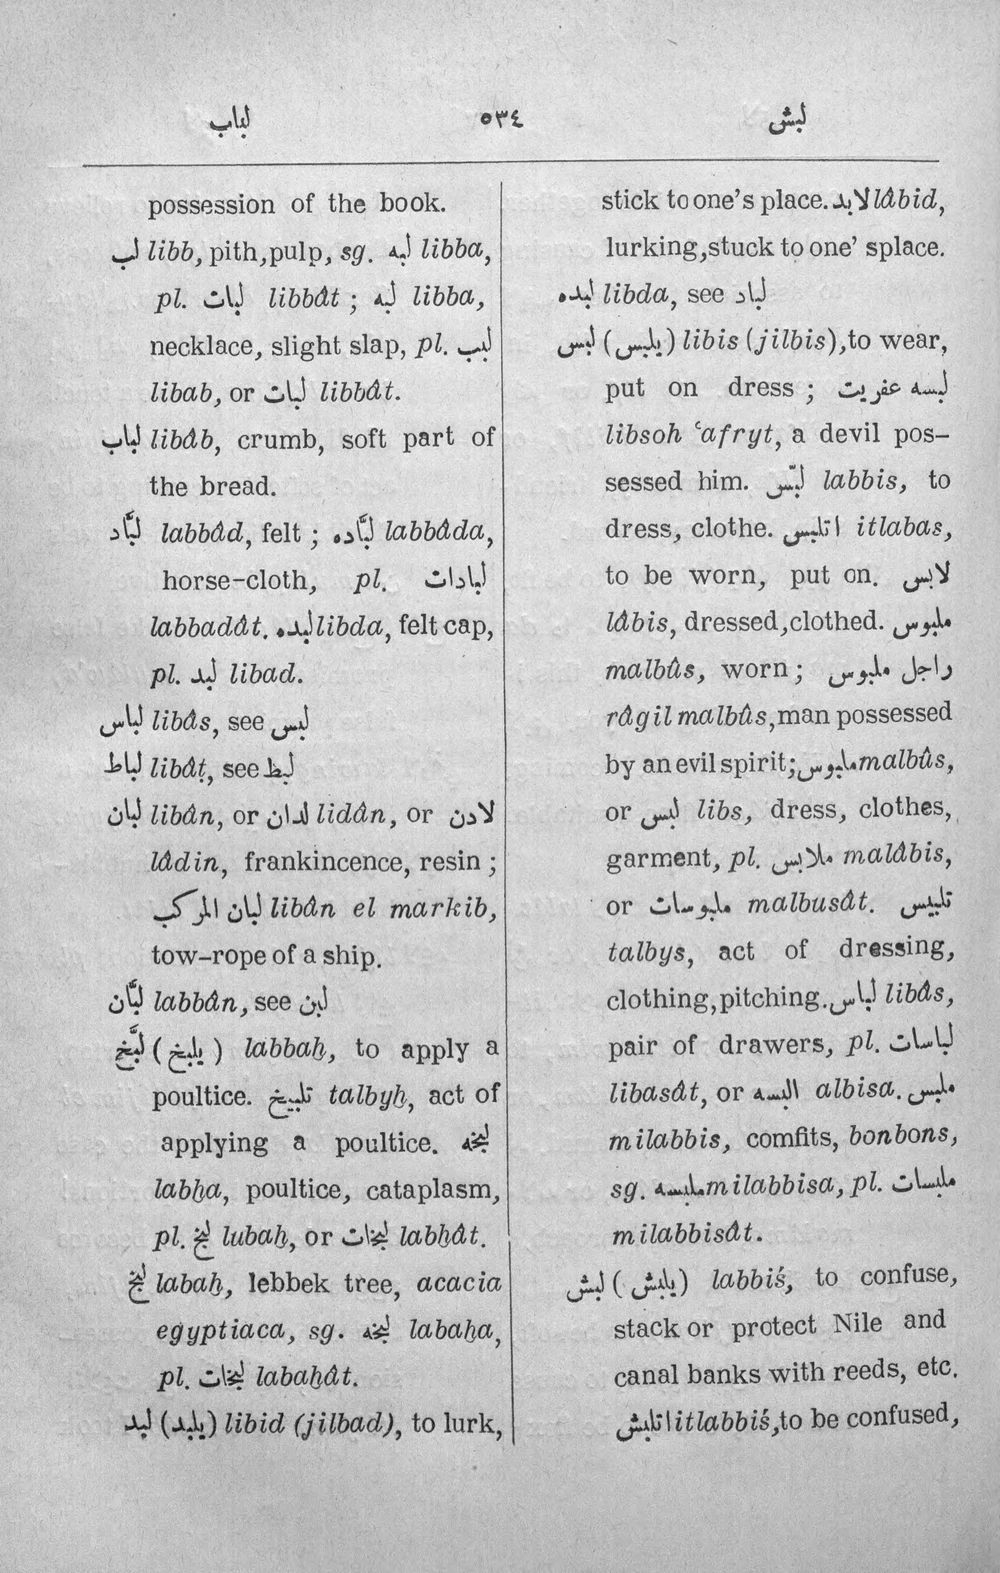 لباب ٥٣٤ لبش
possession of the book.
لب libb, pith,pulp, sg. لبه libba,
pl. لبات libbât ; لبه libba,
necklace, slight slap, pl. لبب
libab, or لبات libbât.
لباب libâb, crumb, soft part of
the bread.
لبَّاد labbâd, felt ; لبَّاده labbâda,
horse-cloth, pl. لبادات
labbadât. لبده libda, felt cap,
pl. لبد libad.
لباس libâs, see لبس
لباط libâṭ, see لبط
لبان libân, or لدان lidân, or لادن
lâdin, frankincense, resin ;
لبان المركب libân el markib,
tow-rope of a ship.
لبَّان labbân, see لبن
لبَّخ ( يلبخ ) labbaḫ, to apply a
poultice. تلبيخ talbyḫ, act of
applying a poultice. لبخه
labḫa, poultice, cataplasm,
pl. لبخ lubaḫ, or لبخات labḫât.
لبخ labaḫ, lebbek tree, acacia
egyptiaca, sg. لبخه labaḫa,
pl. لبخات labaḫât.
لبد (يلبد) libid (jilbad), to lurk,
stick to one's place. لابد lâbid,
lurking,stuck to one' splace.
لبده libda, see لباد
لبس (يلبس) libis (jilbis),to wear,
put on dress ; لبسه عفريت
libsoh ʿafryt, a devil pos-
sessed him. لبّس labbis, to
dress, clothe. اتلبس itlabas,
to be worn, put on. لابس
lâbis, dressed,clothed. ملبوس
malbûs, worn ; راجل ملبوس
râgil malbûs,man possessed
by an evil spirit; ملبوس malbûs,
or لبس libs, dress, clothes,
garment, pl. ملابس malâbis,
or ملبوسات malbusât. تلبيس
talbys, act of dressing,
clothing,pitching. لباس libâs,
pair of drawers, pl. لباسات
libasât, or البسه albisa. ملبس
milabbis, comfits, bonbons,
sg. ملبسه milabbisa, pl. ملبسات
milabbisât.
لبش ( يلبش) labbiś, to confuse,
stack or protect Nile and
canal banks with reeds, etc.
اتلبش itlabbiś,to be confused,